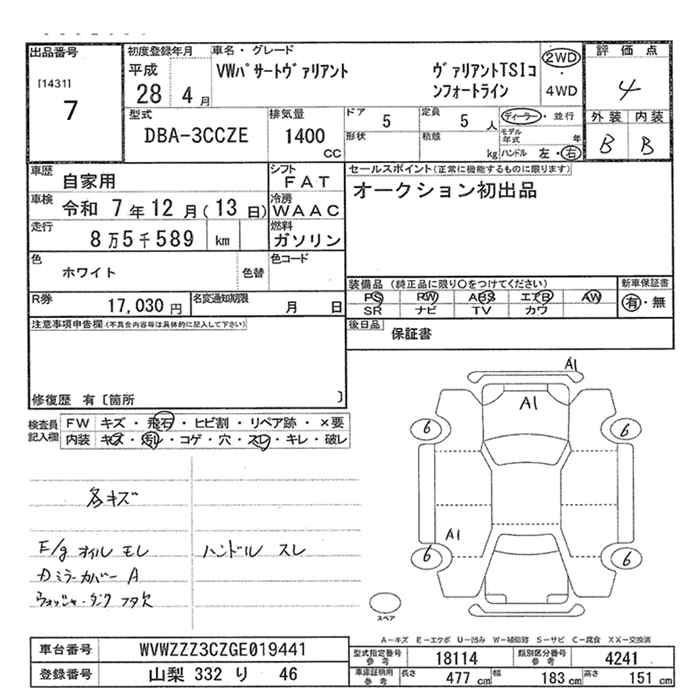 出品番号
[1431]
7
初度登録年月
平成
28 4 月
車名・グレード
VWパサートヴァリアント ヴァリアントTSIコ
ンフォートライン
2WD
・
4WD
評価点
4
外装 内装
B B
型式
DBA-3CCZE
排気量
1400
CC
ドア 5
定員 5 人
形状
積載 kg
ディーラー・並行
モデル年式 年
ハンドル 左・右
車歴
自家用
シフト
FAT
車検
令和 7年12月(13日)
冷房
WAAC
走行
8万5千589 km
燃料
ガソリン
色
ホワイト
色替
色コード
R券
17,030 円
名変通知期限
月 日
セールスポイント(正常に機能するものに限ります)
オークション初出品
装備品 (純正品に限り○をつけてください)
PS RW ABS エアB AW
SR ナビ TV カワ
新車保証書
有・無
後日品
保証書
注意事項申告欄(不具合内容等は具体的に記入して下さい)
修復歴 有〔箇所 〕
検査員
記入欄
FW キズ・飛石・ヒビ割・リペア跡・×要
内装 キズ・汚レ・コゲ・穴・スレ・キレ・破レ
各キズ
E/g オイル モレ
ハンドル スレ
Dミラーカバー A
ウォッシャータンク フタ欠
A1
A1
6
6
A1
6
6
スペア
A−キズ E−エクボ U−凹み W−補修跡 S−サビ C−腐食 XX−交換済
車台番号
WVWZZZ3CZGE019441
登録番号
山梨 332 り 46
型式指定番号
参考
18114
類別区分番号
参考
4241
車庫証明用
参考
長さ 477 cm
幅 183 cm
高さ 151 cm